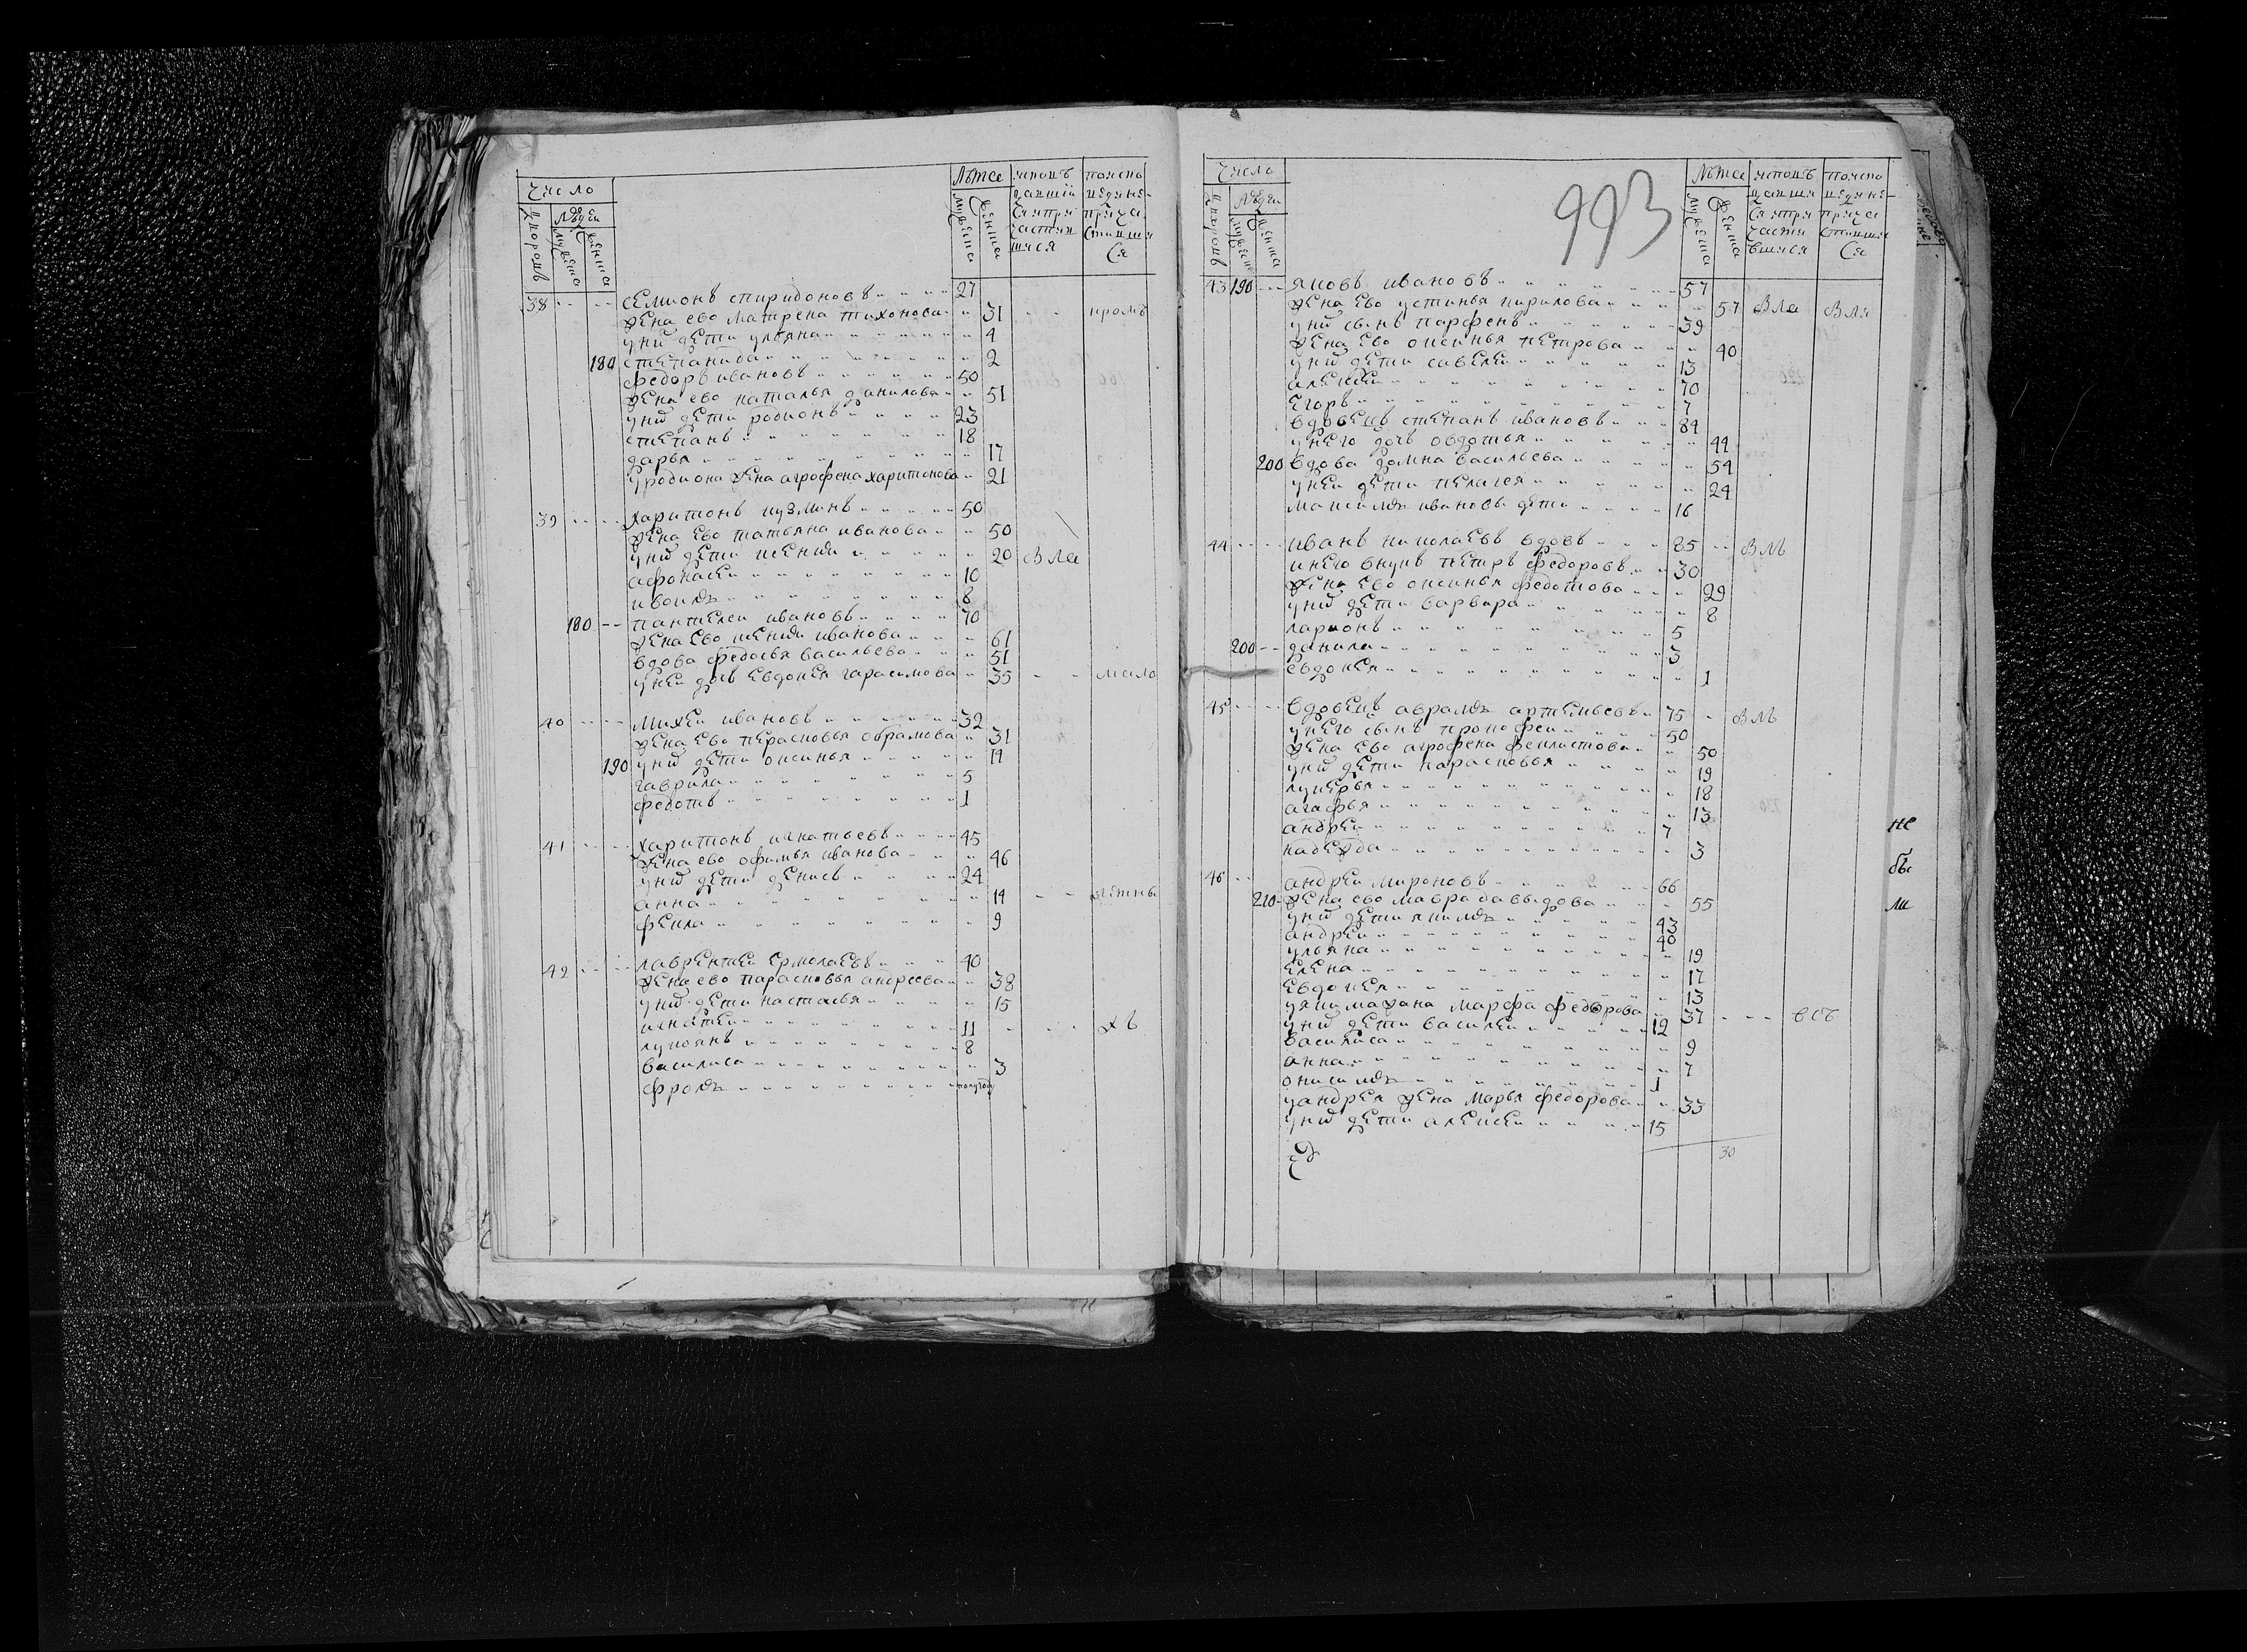 Число
Лѣтсе
Людеи
Дворовъ
мужеска
женска
мужеска
женска
38 семионъ спиридоновъ 27
жена ево матрена тихонова 31
у нихъ дети ульяна 4
180 степанида 2
федоръ ивановъ 50
жена ево наталья данилова 51
у нихъ дети родионъ 23
степанъ 18
дарья 17
у родиона жена агрофена харитонова 21
39 харитонъ кузминъ 50
жена ево татьяна иванова 50
у нихъ дети ксения 20 вла
афонасеи 10
ивоилъ 8
180 пантелеи ивановъ 70
жена ево ксения иванова 61
вдова федосья васильева 51
у неи дочь евдокея гарасимова 35
40 михеи ивановъ 32
жена ево перасковья обрамова 31
190 у нихъ дети оксинья 14
гаврила 5
федотъ 1
41 харитонъ игнатьевъ 45
жена ево офимья иванова 46
у нихъ дети денисъ 24
анна 14
фекла 9
42 лаврентеи ермолаевъ 40
жена ево парасковья андреева 38
у нихъ дети настасья 15
игнатеи 11
лукоянъ 8
василиса 3
фролъ полугоду
Число
993
Лѣтсе
Людеи
43 190 яковъ ивановъ 57
жена ево устинья кирилова 57 вла вля
у нихъ сынъ парфенъ 39
жена ево оксинья петрова 40
у нихъ дети савелеи 13
алексеи 70
егоръ 7
вдовецъ степанъ ивановъ 84
у него дочь овдотья 44
200 вдова домна васильева 54
у неи дети пелагея 24
максимъ ивановы дети 16
44 иванъ николаевъ вдовъ 85 влъ
у него внукъ петръ федоровъ 30
жена ево оксинья федотова 29
у нихъ дети варвара 8
ларионъ 5
200 данила 3
евдокея 1
45 вдовецъ аврамъ артемьевъ 75 влъ
у него сынъ прокофеи 50
жена ево агрофена феклистова 50
у нихъ дети парасковья 19
лукерья 18
агафья 13
андреи 7
надежда 3
46 андреи мироновъ 66
210 жена ево мавра давыдова 55
у нихъ дети якимъ 43
андреи 40
ульяна 19
елена 17
евдокея 13
у якима жана марфа федорова 37
у нихъ дети василеи 12
василиса 9
анна 7
онисимъ 1
у андрея жена марья федорова 33
у нихъ дети алексеи 15
30
не
бы
ли